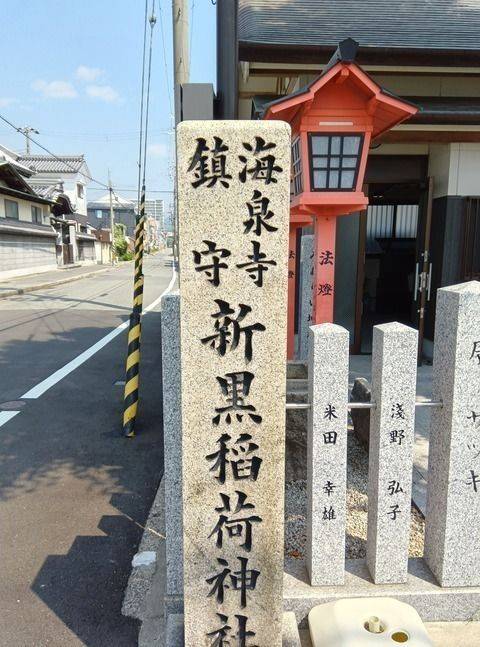 海泉寺
鎮守
新黒稲荷神社
法燈
米田幸雄
浅野弘子
サツキ